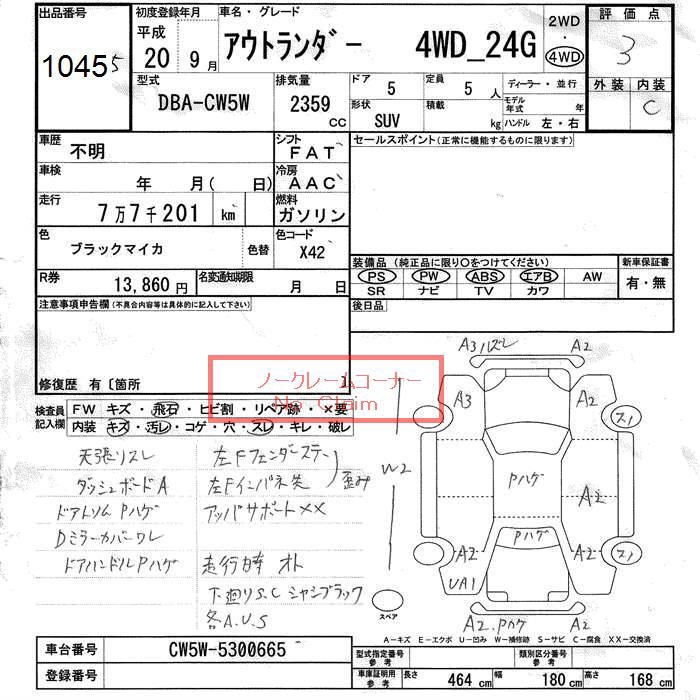 出品番号
10455
初度登録年月
平成
20 9月
車名・グレード
アウトランダー 4WD_24G
2WD
・
4WD
評価点
3
型式
DBA-CW5W
排気量
2359
CC
ドア 5
定員 5 人
形状
SUV
積載
kg
ディーラー・並行
モデル年式 年
ハンドル 左・右
外装 内装
C
車歴
不明
シフト
FAT
セールスポイント(正常に機能するものに限ります)
車検
年 月( 日)
冷房
AAC
走行
7万7千201 km
燃料
ガソリン
色
ブラックマイカ 色替
色コード
X42
装備品(純正品に限り〇をつけてください)
新車保証書
PS PW ABS エアB AW
SR ナビ TV カワ
有・無
R券
13,860円
名変通知期限
月 日
後日品
注意事項申告欄(不具合内容等は具体的に記入して下さい)
修復歴 有〔箇所 〕
ノークレームコーナー
No Claim
検査員記入欄
FW キズ・飛石・ヒビ割・リペア跡・×要
内装 キズ・汚レ・コゲ・穴・スレ・キレ・破レ
天張リスレ
ダッシュボードA
ドアトリムPハゲ
Dミラーカバーワレ
ドアハンドルPハゲ
左Fフェンダーステー
左Fインパネ先
歪み
アッパサポートXX
走行時 オト
下廻りS.C シャシブラック
各A.U.S
A3ハズレ A2
A3 A2
スレ
W2
Pハゲ
A2
A2 Pハゲ A2
UA1
スレ
A2.Pハゲ A2
スペア
A-キズ E-エクボ U-凹み W-補修跡 S-サビ C-腐食 XX-交換済
車台番号
CW5W-5300665
登録番号
型式指定番号
参考
類別区分番号
参考
車庫証明用
参考
長さ 464 cm
幅 180 cm
高さ 168 cm